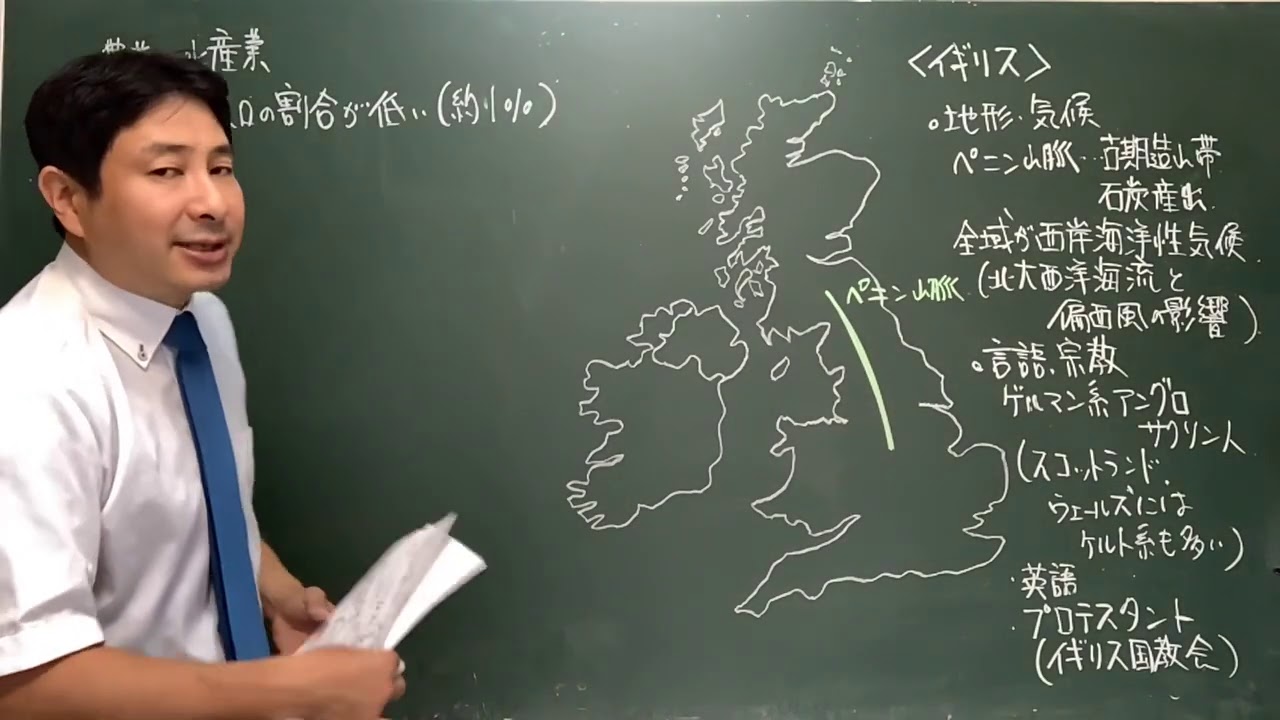 水産業
口の割合が低い(約1%)
<イギリス>
。地形・気候
ペニン山脈…古期造山帯
石炭産出
全域が西岸海洋性気候
ペニン山脈
(北大西洋海流と
偏西風の影響)
。言語、宗教
ゲルマン系アングロ
サクソン人
(スコットランド、
ウェールズには
ケルト系も多い)
・英語
・プロテスタント
(イギリス国教会)